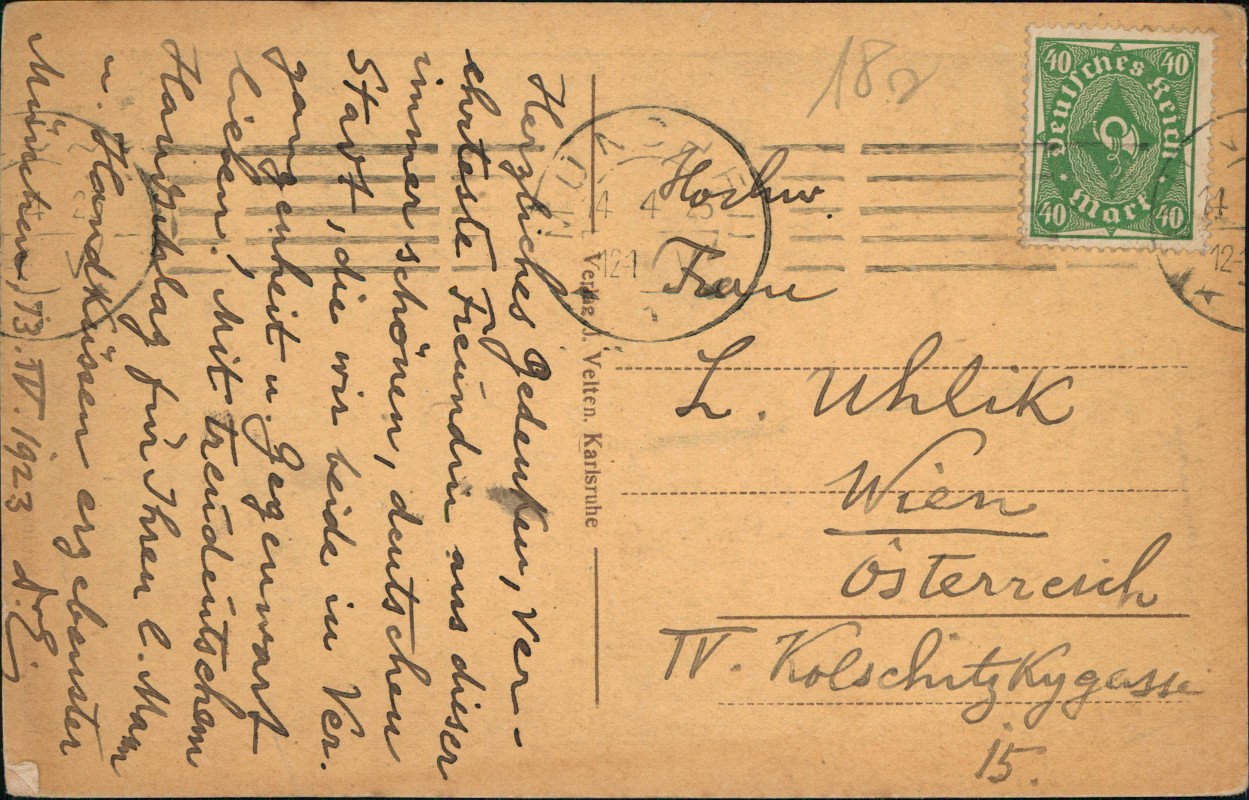 Herzliches Gedenken, ver-
ehrteste Freundin aus diser
immer schönen, deutschen
Stadt, die wir beide in Ver-
gangenheit u. Gegenwart
lieben; Mit treudeutschem
Handschlag für Ihren l. Mann
u. Handküssen ergebenster
München, 13. IV. 1923
Verlag J. Velten, Karlsruhe
18
40 40
Deutsches Reich
Mark
40 40
4 4 23
12-1
14
12-
Hochw.
Frau
L. Uhlik
Wien
Österreich
IV. Kolschitzkygasse
15.